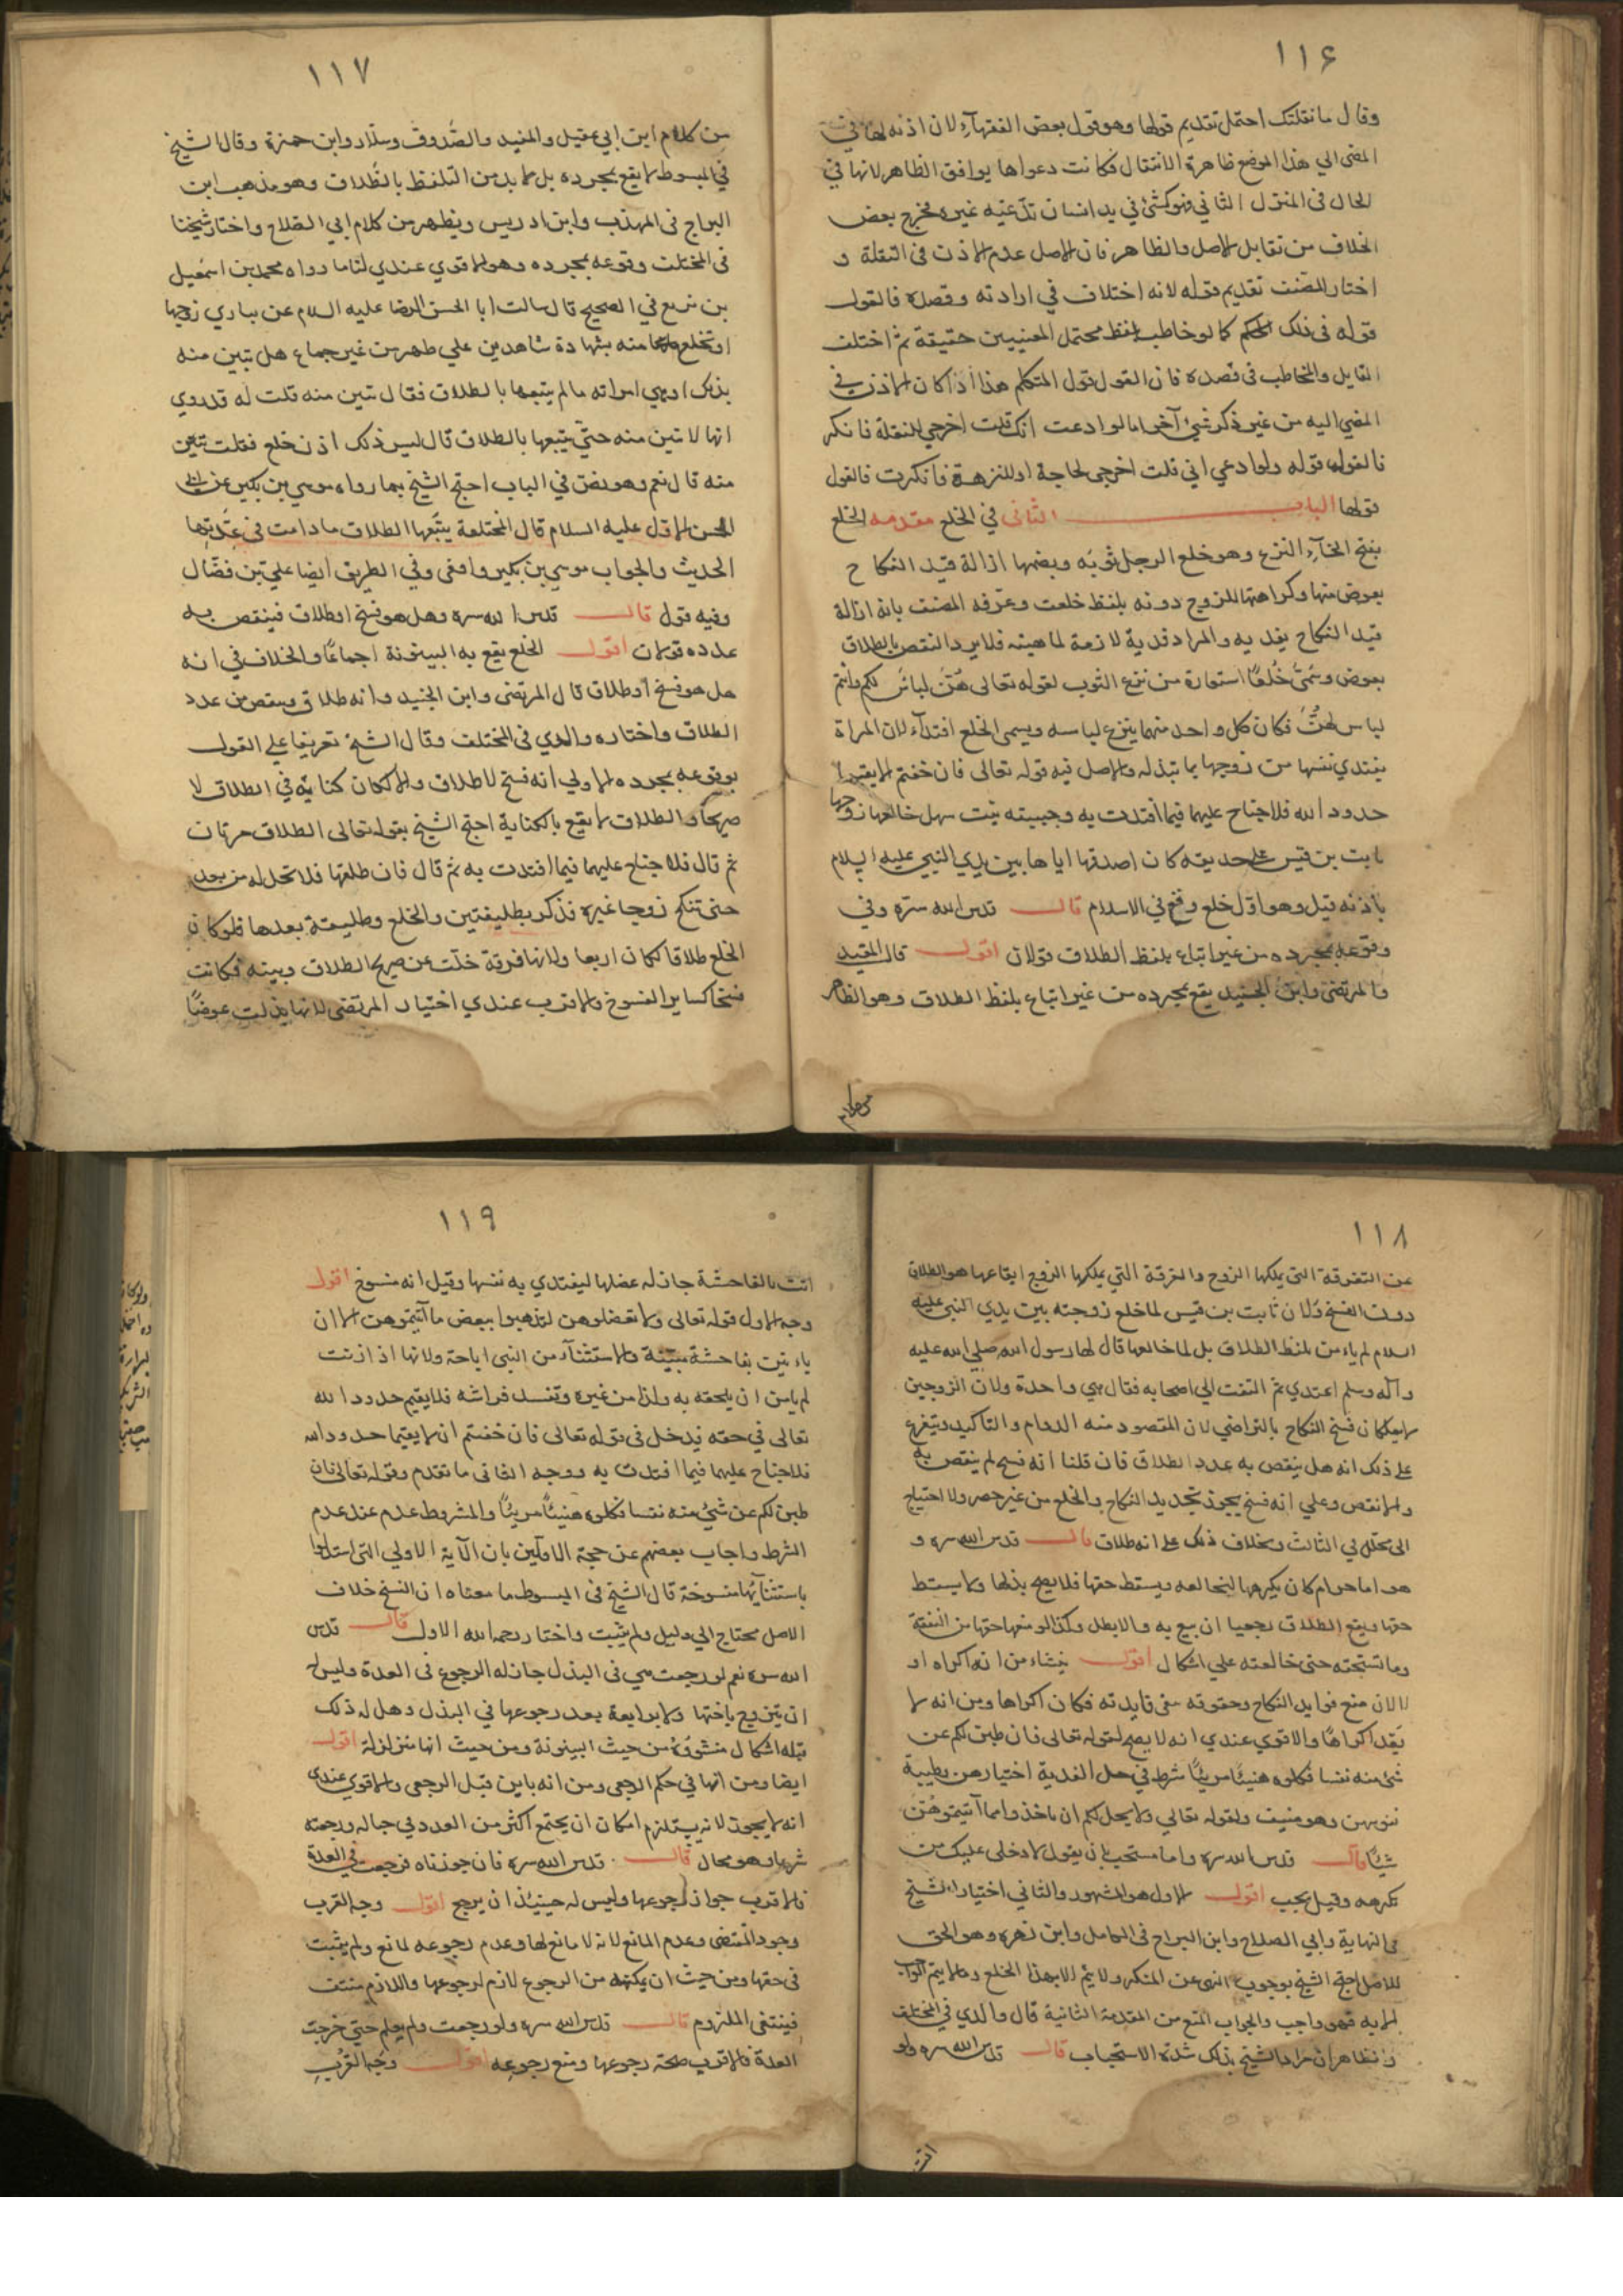 ١١۶
وقال ما نقلتك احتمل تقديم قولها وهو قول بعض الفقهاء لان اذنه لها في
المضي الي هذا الموضع ظاهرة الانتقال فكانت دعواها يوافق الظاهر لانها في
الحال في المنزل الثاني فهو كشئ في يد انسان يدعيه غيره فخرج بعض
الخلاف من تقابل الاصل والظاهر فان الاصل عدم الاذن في النقلة و
اختار المصنف تقديم قوله لانه اختلاف في ارادته وقصده فالقول
قوله في ذلك الحكم كما لو خاطب بلفظ محتمل المعنيين حقيقة ثم اختلف
القايل والمخاطب في قصده فان القول قول المتكلم هذا اذا كان الاذن في
المضي اليه من غير ذكر شئ آخر اما لو ادعت انك قلت اخرجي للنقلة فانكر
فالقول قوله ولو ادعي اني قلت اخرجي لحاجة او للنزهة فانكرت فالقول
قولها الباب الثاني في الخلع مقدمه الخلع
بفتح الخآء النزع وهو خلع الرجل ثوبه وبضمها ازالة قيد النكاح
بعوض منها وكراهتها للزوج دونه بلفظ خلعت وعرفه المصنف بانه ازالة
قيد النكاح بفديه والمراد فدية لازمة لماهيته فلا يرد النقص بالطلاق
بعوض وسمي خلعًا استعارة من نزع الثوب لقوله تعالى هن لباس لكم وانتم
لباس لهن فكان كل واحد منهما ينزع لباسه ويسمى الخلع افتدآء لان المراة
يفتدي نفسها من زوجها بما تبذله والاصل فيه قوله تعالى فان خفتم الا يقيما
حدود الله فلا جناح عليهما فيما افتدت به وحبيبته بنت سهل خالعها زوجها
ثابت بن قيس على حديقه كان اصدقها اياها بين يدي النبي عليه السلام
باذنه قيل وهو اول خلع وقع في الاسلام قال قدس الله سره وفي
وقوعه بمجرده من غير اتباع بلفظ الطلاق قولان اقول قال المفيد
والمرتضى وابن الجنيد يقع بمجرده من غير اتباع بلفظ الطلاق وهو الظاهر
من كلام
١١٧
من كلام ابن ابي عقيل والمفيد والصدوق وسلار وابن حمزة وقال الشيخ
في المبسوط لا يقع بمجرده بل لا بد من التلفظ بالطلاق وهو مذهب ابن
البراج في المهذب وابن ادريس ويظهر من كلام ابي الصلاح واختار شيخنا
في المختلف وقوعه بمجرده وهو الاقوي عندي لنا ما رواه محمد بن اسمعيل
بن بزيع في الصحيح قال سالت ابا الحسن الرضا عليه السلام عن يباري زوجها
او تخلع منه بشهادة شاهدين علي طهر من غير جماع هل تبين منه
بذلك او هي امراته ما لم يتبعها بالطلاق فقال تبين منه قلت له قد روي
انها لا تبين منه حتى يتبعها بالطلاق قال ليس ذلك اذن خلع فقلت تبين
منه قال نعم وهو نص في الباب احتج الشيخ بما رواه موسي بن بكير عن ابي
الحسن الاول عليه السلام قال المختلعة يتبعها الطلاق ما دامت في عدتها
الحديث والجواب موسي بن بكير واقفى وفي الطريق ايضا علي بن فضال
وفيه قول قال قدس الله سره وهل هو فسخ او طلاق فينقص به
عدده قولان اقول الخلع يقع به البينونة اجماعًا والخلاف في انه
هل هو فسخ او طلاق قال المرتضى وابن الجنيد وانه طلاق وينقص من عدد
الطلاق واختاره والدي في المختلف وقال الشيخ تعريفا علي القول
بوقوعه بمجرده الاولي انه فسخ لا طلاق والا لكان كناية في الطلاق لا
صريحًا والطلاق لا يقع بالكناية احتج الشيخ بقوله تعالى الطلاق مرتان
ثم قال فلا جناح عليهما فيما افتدت به ثم قال فان طلقها فلا تحل له من بعد
حتى تنكح زوجا غيره فذكر تطليقتين والخلع وطليقة بعدها فلو كان
الخلع طلاقا لكان اربعا ولانها فرقة خلت عن صريح الطلاق وبينه فكانت
فسخا كساير الفسوخ والاقرب عندي اختيار المرتضى لانها بذلت عوضًا
١١٨
عن التفرقة التي يملكها الزوج والفرقة التي يملكها الزوج ايقاعها هو الطلاق
دون الفسخ ولان ثابت بن قيس لما خلع زوجته بين يدي النبي عليه
السلام لم يامر بلفظ الطلاق بل لما خالعها قال لها رسول الله صلى الله عليه
وآله وسلم اعتدي ثم التفت الي اصحابه فقال هي واحدة ولان الزوجين
لا يملكان فسخ النكاح بالتراضي لان المقصود منه الدوام والتاكيد ويتفرع
على ذلك انه هل ينقص به عدد الطلاق فان قلنا انه فسخ لم ينقص به
والا نقص وعلي انه فسخ يجوز تجديد النكاح والخلع من غير حصر ولا احتياج
الى محلل في الثالث وبخلاف ذلك على انه طلاق قال قدس الله سره و
هو اما حرام كان يكرهها لتخالعه ويسقط حقها فلا يصح بذلها ولا يسقط
حقها ويقع الطلاق رجعيا ان تبع به والا بطل وكذا لو منعها حقها من النفقة
وما تستحقه حتى خالعته علي اشكال اقول ينشاء من انه اكراه او
لا لان منع فوايد النكاح وحقوقه في فايدته فكان اكراها ومن انه لا
يعد اكراهًا والاقوي عندي انه لا يصح لقوله تعالى فان طبن لكم عن
شئ منه نفسا فكلوه هنيئًا مريئًا شرط في حل الفدية اختيارهن وطيبة
نفوسهن وهو منتف ولقوله تعالي ولا يحل لكم ان تاخذوا مما آتيتموهن
شيئًا قال قدس الله سره واما مستحب بان يقول لا دخلن عليك من
تكرهه وقيل يجب اقول الاول هو المشهور والثاني اختيار الشيخ
في النهاية وابي الصلاح وابن البراج في الكامل وابن زهره وهو الحق
للاصل احتج الشيخ بوجوب النهي عن المنكر ولا يتم الا بهذا الخلع وما لا يتم الواجب
الا به فهو واجب والجواب المنع من المقدمة الثانية قال والدي في المختلف
والظاهر ان مراد الشيخ بذلك شدة الاستحباب قال قدس الله سره ولو
اتت
١١٩
اتت بالفاحشة جاز له عضلها ليفتدي به نفسها وقيل انه منسوخ اقول
وجه الاول قوله تعالى ولا تعضلوهن لتذهبوا ببعض ما آتيتموهن الا ان
ياءتين بفاحشة مبينة والاستثنآء من النهي اباحة ولانها اذا زنت
لم يامن ان يلحقه به ولد من غيره وتفسد فراشه فلا يقيم حدود الله
تعالى في حقه فيدخل في قوله تعالى فان خفتم ان لا يقيما حدود الله
فلا جناح عليهما فيما افتدت به ووجه الثاني ما تقدم وقوله تعالى فان
طبن لكم عن شئ منه نفسا فكلوه هنيئًا مريئًا والمشروط عدم عند عدم
الشرط واجاب بعضهم عن حجة الاولين بان الآية الاولي التي استدلوا
باستثنائها منسوخة قال الشيخ في المبسوط ما معناه ان النسخ خلاف
الاصل محتاج الي دليل ولم يثبت واختار رحمه الله الاول قال قدس
الله سره نعم لو رجعت هي في البذل جاز له الرجوع في العدة وليس له
ان يتزوج باختها ولا برابعة بعد رجوعها في البذل وهل له ذلك
قبله اشكال منشؤه من حيث البينونة ومن حيث انها متزلزلة اقول
ايضا ومن انها في حكم الرجعي ومن انه باين قبل الرجعي والاقوي عندي
انه لا يجوز لانه يستلزم امكان ان يجتمع اكثر من العدد في حباله ورجعته
شرعا وهو محال قال قدس الله سره فان جوزناه فرجعت في العدة
فالاقرب جواز رجوعها وليس له حينئذ ان يرجع اقول وجه القرب
وجود المقتضى وعدم المانع لانه لا مانع لها وعدم رجوعه لمانع ولم يثبت
في حقها ومن حيث ان يمكنه من الرجوع لازم لرجوعها واللازم منتف
فينتفى الملزوم قال قدس الله سره ولو رجعت ولم يعلم حتى خرجت
العدة فالاقرب صحة رجوعها ومنع رجوعه اقول وجه القرب